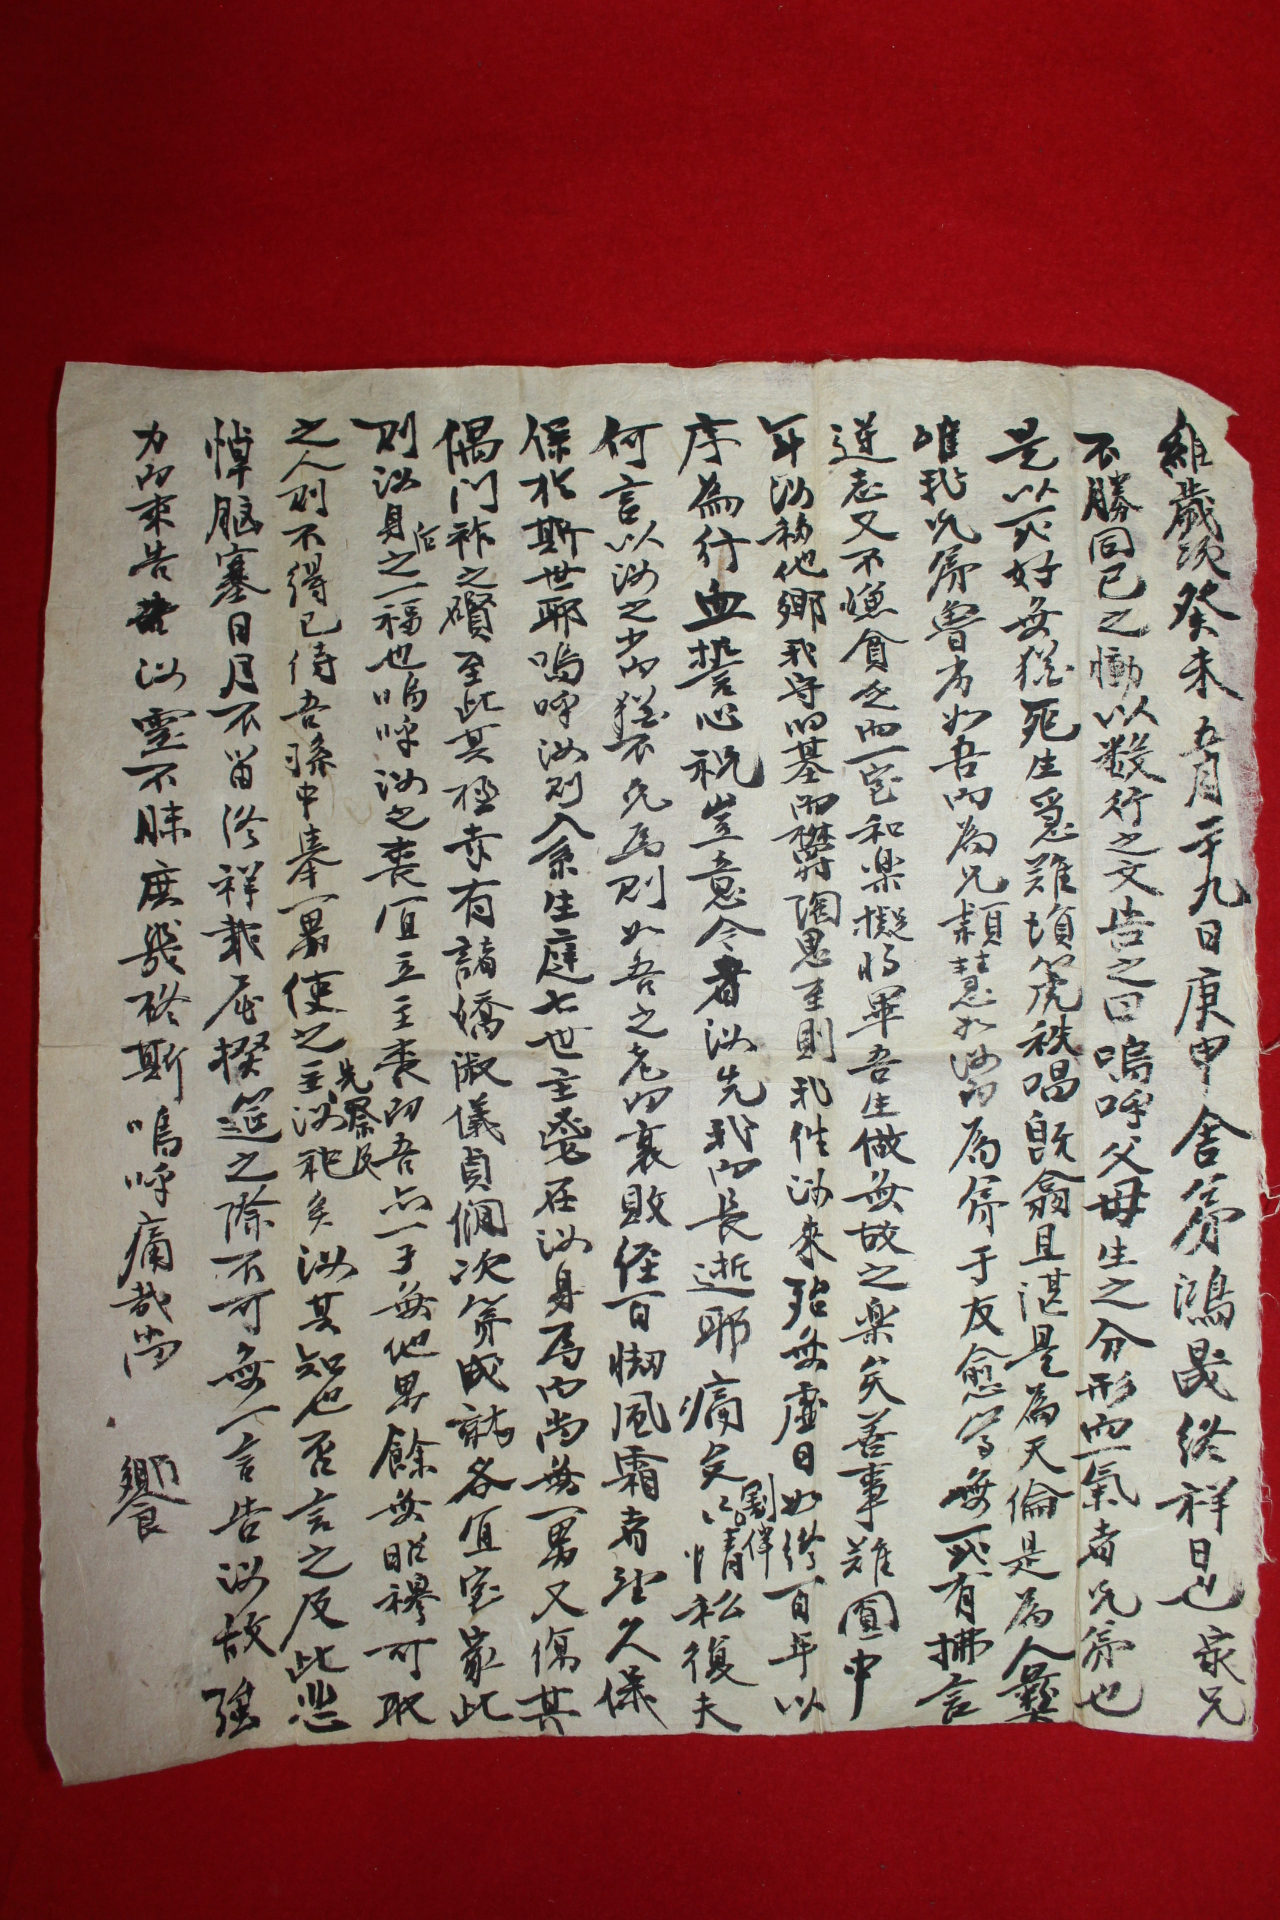 維歲次癸未五月二十九日庚申舍弟鴻晟終祥日也家兄
不勝同己之慟以數行之文告之曰嗚呼父母生之分形而一氣者兄弟也
是以死好無猶死生爰難塤箎秩唱旣翕且湛是爲天倫是爲人彝
唯我兄弟魯劣如吾而爲兄穎慧如汝而爲弟于友愈篤無或有拂言
逆志又不憾貧乏而一室和樂擬將畢吾生做無故之樂矣善事難圓中
年汝移他鄕我守旧基而欝陶思至則我往汝來殆無虛日如終百年以
序爲行血誓心祝豈意今者汝先我而長逝耶痛矣割半之情私復夫
何言以汝之少而猶不免焉則如吾之老而衰敗經百拗風霜者望久保
保於斯世耶嗚呼汝則入系生庭七世主鬯在汝身焉而尚無一男又傷其
偶門祚之釁至此其極幸有諸嬌淑儀貞僩次第成就各宜室家此
則汝身后之一福也嗚呼汝之喪宜立主喪而吾亦一子無他男餘無昭穆可取
之人則不得已待吾孫中擧一男使之主先祭及汝祀矣汝其知也否言之及此悲
悼膈塞日月不留終祥載屆撤筵之際不可無一言告汝故强
力而來告 汝靈不昧庶幾啓斯嗚呼痛哉尚 饗